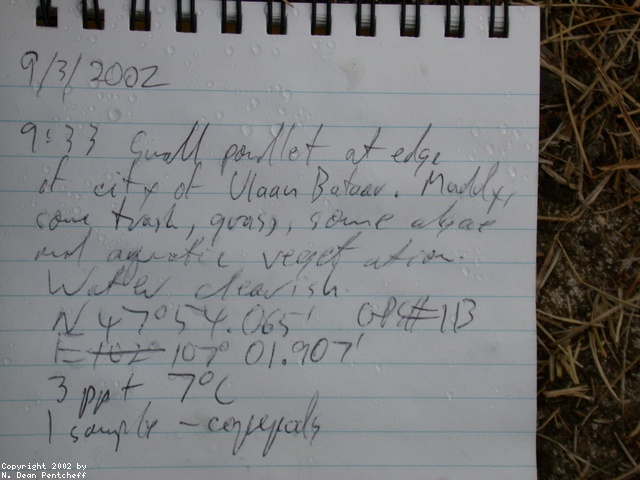 9/3/2002
9:33 Small pondlet at edge
of city of Ulaan Bataar. Muddy,
some trash, grass, some algae
and aquatic vegetation.
Water clearish.
N 47° 54.065' GPS#113
E 102° 107° 01.907'
3 ppt, 7°C
1 sample - copepods
Copyright 2002 by
N. Dean Pentcheff